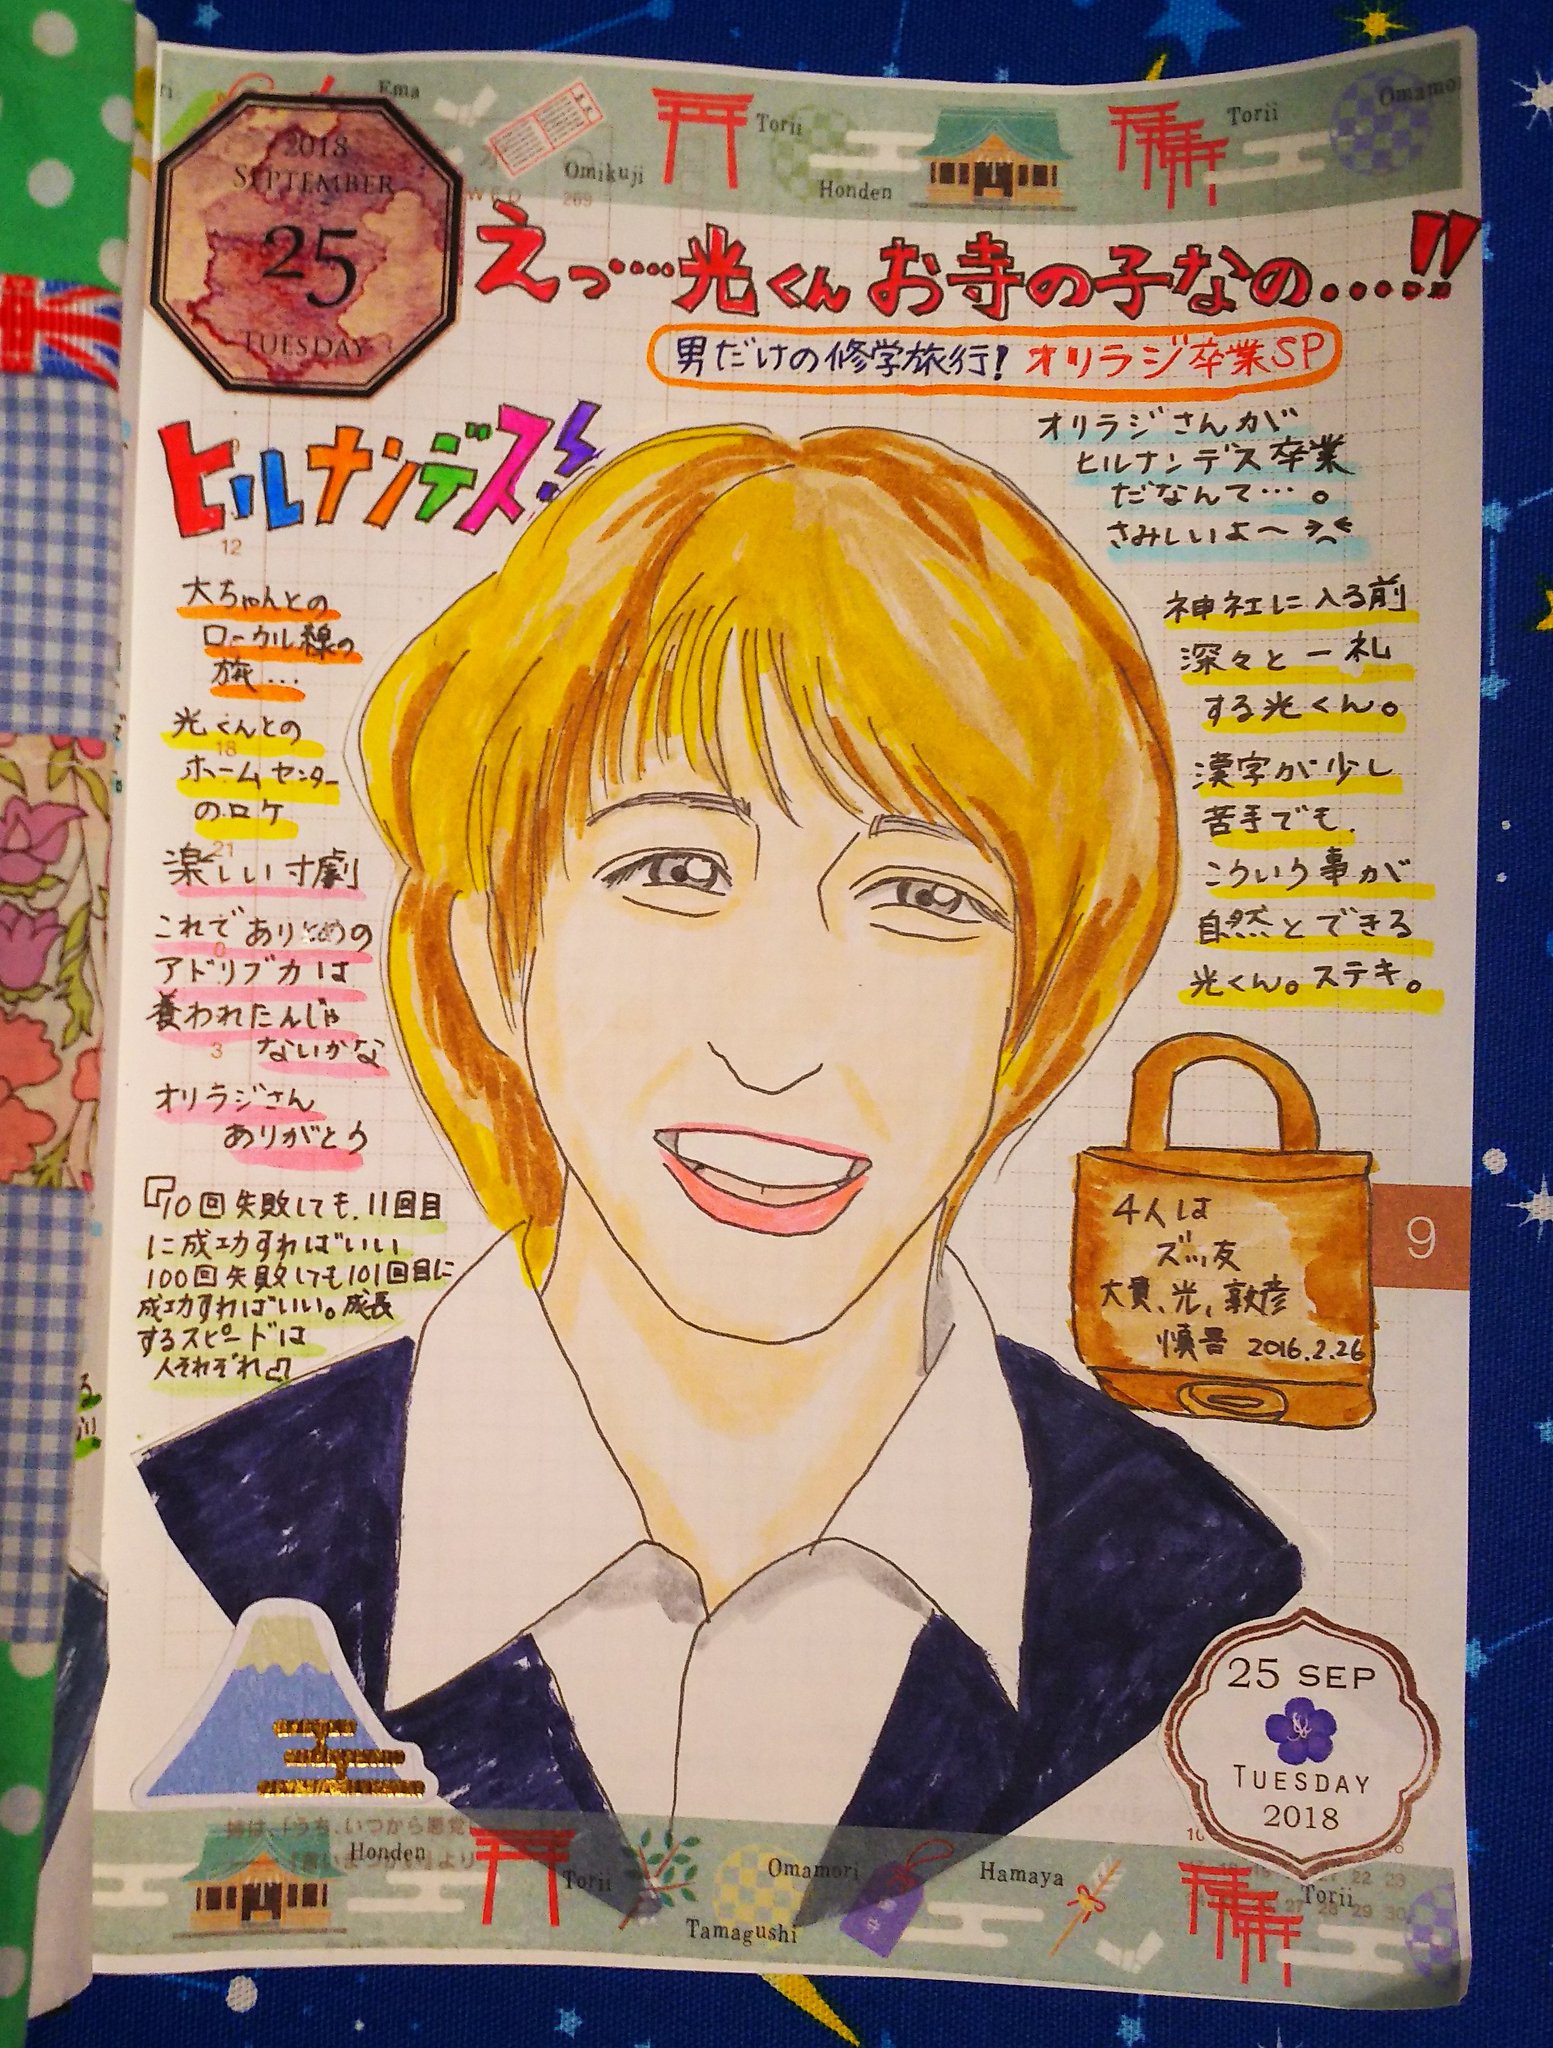 Ema
Omikuji
Torii
Honden
Torii
Omamori
2018
SEPTEMBER
25
TUESDAY
WED
269
えっ…光くんお寺の子なの…!!
男だけの修学旅行! オリラジ卒業SP
ヒルナンデス!
オリラジさんが
ヒルナンデス卒業
だなんて…。
さみしいよ〜
12
大ちゃんとの
ローカル線の
旅…
光くんとの
18
ホームセンター
のロケ
21
楽しい寸劇
これでありとめの
0
アドリブ力は
養われたんじゃ
3
ないかな
オリラジさん
ありがとう
『10回失敗しても、11回目
に成功すればいい
100回失敗しても101回目に
成功すればいい。成長
するスピードは
人それぞれ』
神社に入る前
深々と一礼
する光くん。
漢字が少し
苦手でも、
こういう事が
自然とできる
光くん。ステキ。
4人は
ズッ友
大貴、光、敦彦
慎吾 2016.2.26
9
25 SEP
TUESDAY
2018
姉は、「うち、いつから悪党
Honden
Torii
Omamori
Tamagushi
Hamaya
Torii
10
22 23
27 28 29 30